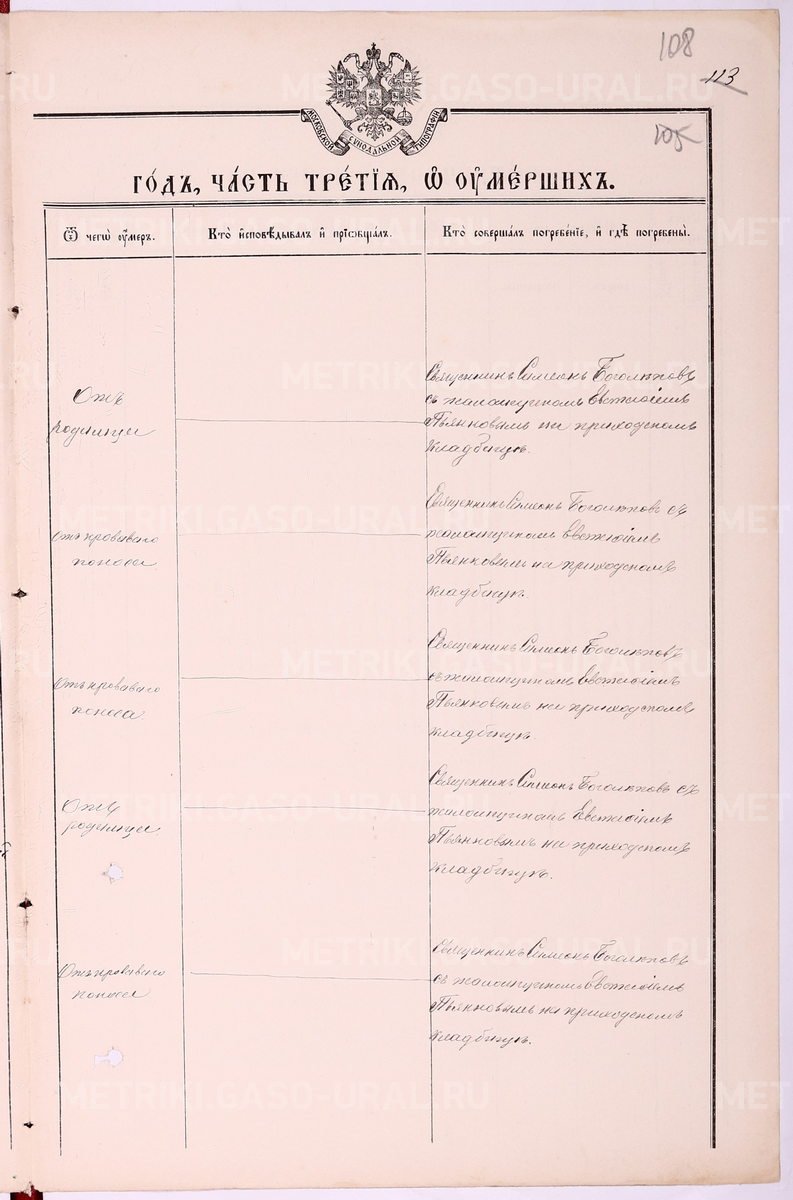 108
113
105
МОСКОВСКОЙ СѴНОДАЛЬНОЙ ТИПОГРАФІИ
ГО́ДЪ, ЧА́СТЬ ТРЕ́ТІѦ, Ѡ ОУ҆МЕ́РШИХЪ.
Ѿ чегѡ̀ оу҆́меръ.
Кто̀ и҆сповѣ́дывалъ и҆ прїѡбща́лъ.
Кто̀ соверша́лъ погребе́нїе, и҆ гдѣ̀ погребены̀.
Отъ
родимца
Священникъ Симеонъ Боголюповъ
съ псаломщикомъ Евсѣиемъ
Пьянковымъ на приходскомъ
кладбищѣ.
Отъ кроваваго
поноса
Священникъ Симеонъ Боголюповъ съ
псаломщикомъ
Пьянковымъ на приходскомъ
кладбищѣ.
Отъ кроваваго
поноса
Священникъ Симеонъ Боголюповъ
съ псаломщикомъ
Пьянковымъ на приходскомъ
кладбищѣ.
Отъ
родимца
Священникъ Симеонъ Боголюповъ съ
псаломщикомъ
Пьянковымъ на приходскомъ
кладбищѣ.
Отъ кроваваго
поноса
Священникъ Симеонъ Боголюповъ
съ псаломщикомъ
Пьянковымъ на приходскомъ
кладбищѣ.
METRIKI.GASO-URAL.RU